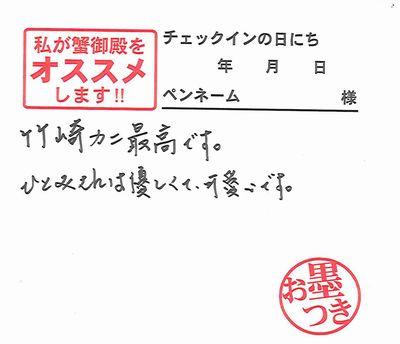 私が蟹御殿を
オススメ
します!!
チェックインの日にち
年 月 日
ペンネーム 様
竹崎カニ最高です。
ひとみさんは優しくて、可愛いです。
お墨
つき